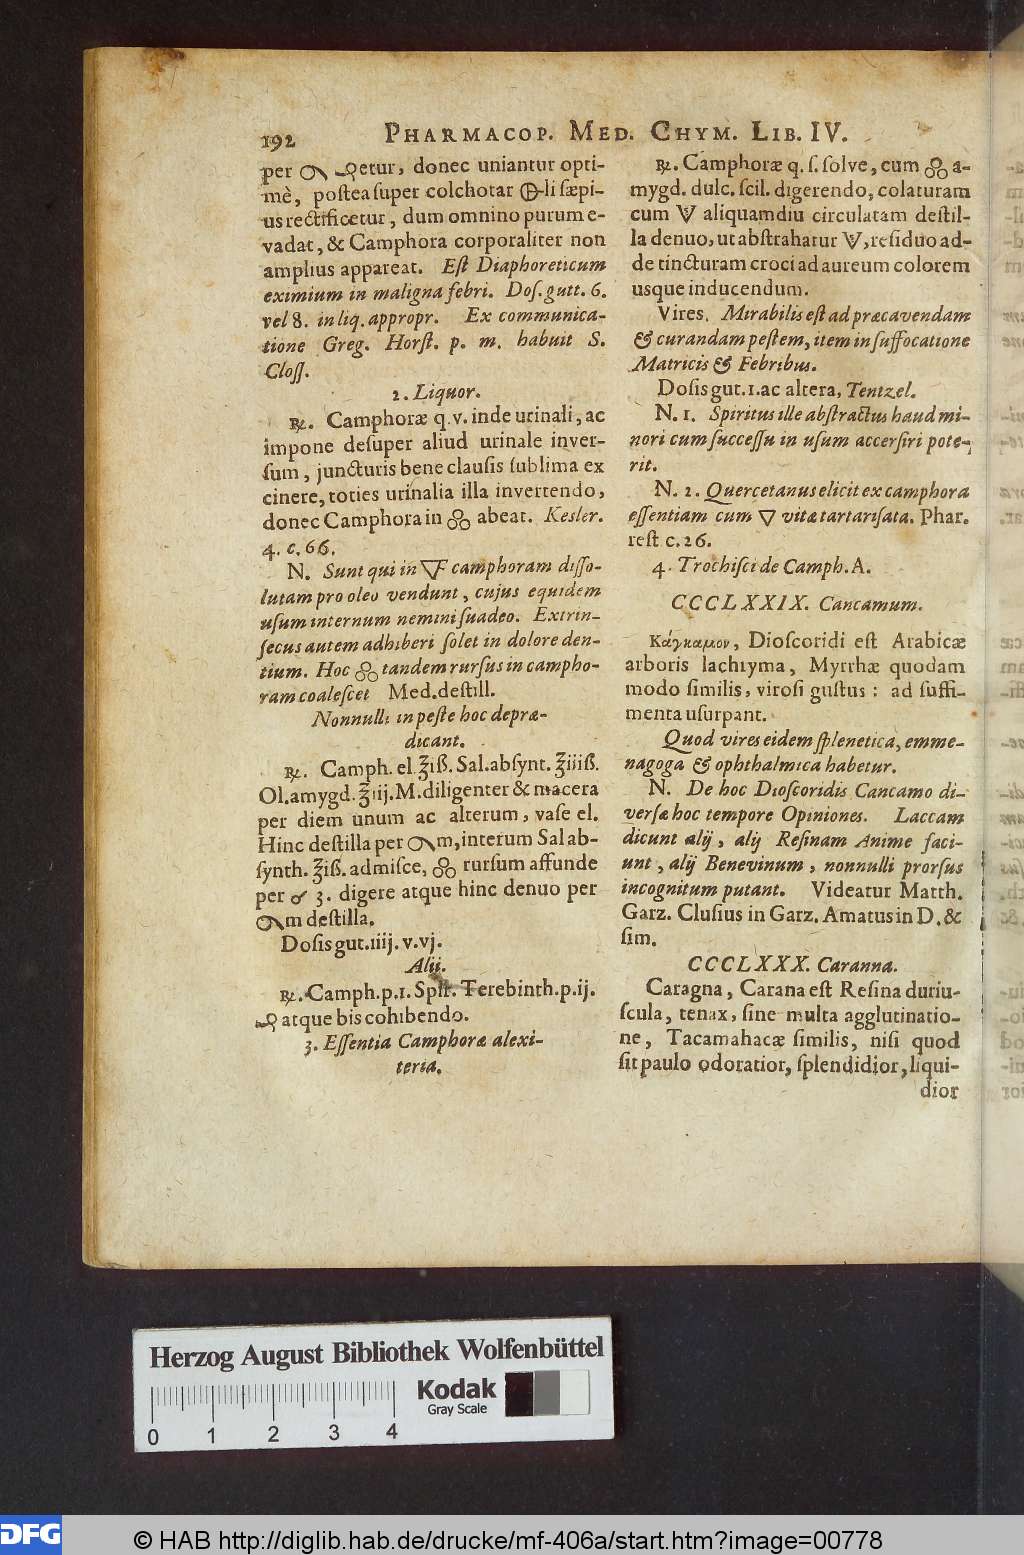 192 PHARMACOP. MED. CHYM. LIB. IV.
per etur, donec uniantur opti-
mè, postea super colchotar li sæpi-
us rectificetur, dum omnino purum e-
vadat, & Camphora corporaliter non
amplius appareat. Est Diaphoreticum
eximium in maligna febri. Dos. gutt. 6.
vel 8. in liq. appropr. Ex communica-
tione Greg. Horst. p. m. habuit S.
Closs.
2. Liquor.
℞. Camphoræ q. v. inde urinali, ac
impone desuper aliud urinale inver-
sum, juncturis bene clausis sublima ex
cinere, toties urinalia illa invertendo,
donec Camphora in abeat. Kesler.
4. c. 66.
N. Sunt qui in camphoram disso-
lutam pro oleo vendunt, cujus equidem
usum internum nemini suadeo. Extrin-
secus autem adhiberi solet in dolore den-
tium. Hoc tandem rursus in campho-
ram coalescet Med. destill.
Nonnulli in peste hoc depræ-
dicant.
℞. Camph. el. ℥iß. Sal. absynt. ℥iiiß.
Ol. amygd. ℥iij. M. diligenter & macera
per diem unum ac alterum, vase el.
Hinc destilla per m, interum Sal ab-
synth. ℥iß. admisce, rursum affunde
per 3. digere atque hinc denuo per
m destilla.
Dosis gut. iiij. v. vj.
Alii.
℞. Camph. p. 1. Spir. Terebinth. p. ij.
atque bis cohibendo.
3. Essentia Camphoræ alexi-
teria.
℞. Camphoræ q. s. solve, cum a-
mygd. dulc. scil. digerendo, colaturam
cum aliquamdiu circulatam destil-
la denuo, ut abstrahatur , residuo ad-
de tincturam croci ad aureum colorem
usque inducendum.
Vires. Mirabilis est ad præcavendam
& curandam pestem, item in suffocatione
Matricis & Febribus.
Dosis gut. 1. ac altera, Tentzel.
N. 1. Spiritus ille abstractus haud mi-
nori cum successu in usum accersiri pote-
rit.
N. 2. Quercetanus elicit ex camphora
essentiam cum vitæ tartarisata. Phar.
rest c. 26.
4. Trochisci de Camph. A.
CCCLXXIX. Cancamum.
Κάγκαμον, Dioscoridi est Arabicæ
arboris lachryma, Myrrhæ quodam
modo similis, virosi gustus: ad suffi-
menta usurpant.
Quod vires eidem splenetica, emme-
nagoga & ophthalmica habetur.
N. De hoc Dioscoridis Cancamo di-
versæ hoc tempore Opiniones. Laccam
dicunt alij, alij Resinam Anime faci-
unt, alij Benevinum, nonnulli prorsus
incognitum putant. Videatur Matth.
Garz. Clusius in Garz. Amatus in D. &
sim.
CCCLXXX. Caranna.
Caragna, Carana est Resina duriu-
scula, tenax, sine multa agglutinatio-
ne, Tacamahacæ similis, nisi quod
sit paulo odoratior, splendidior, liqui-
dior
Herzog August Bibliothek Wolfenbüttel
Kodak
Gray Scale
0 1 2 3 4
DFG
© HAB http://diglib.hab.de/drucke/mf-406a/start.htm?image=00778